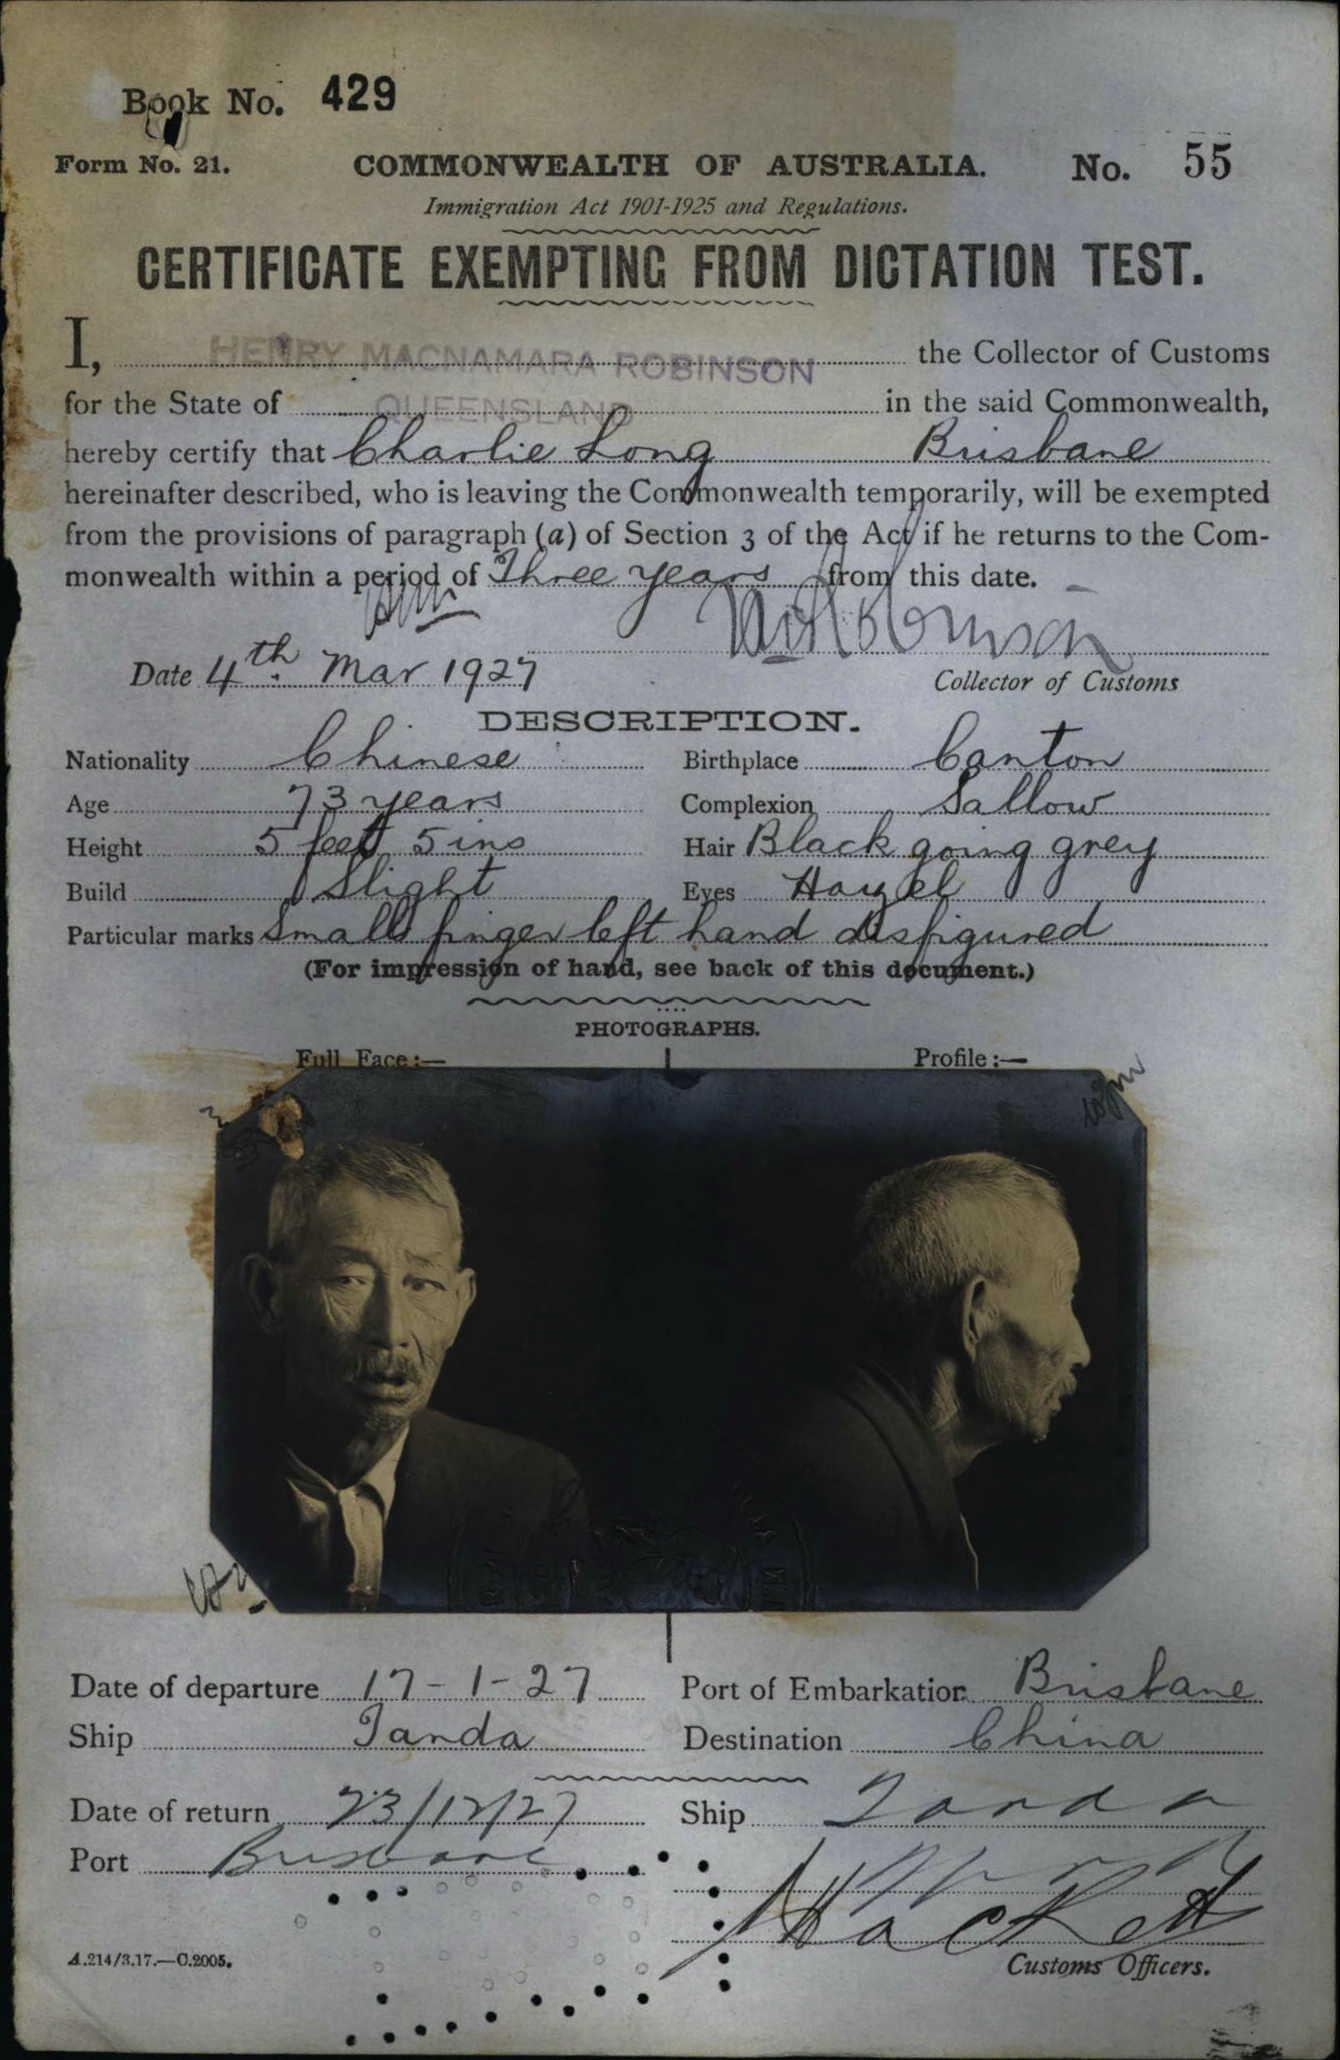 Book No. 429
Form No. 21. COMMONWEALTH OF AUSTRALIA. No. 55
Immigration Act 1901-1925 and Regulations.
CERTIFICATE EXEMPTING FROM DICTATION TEST.
I, HENRY MACNAMARA ROBINSON the Collector of Customs
for the State of QUEENSLAND in the said Commonwealth,
hereby certify that Charlie Long Brisbane
hereinafter described, who is leaving the Commonwealth temporarily, will be exempted
from the provisions of paragraph (a) of Section 3 of the Act if he returns to the Com-
monwealth within a period of Three years from this date.
Date 4th Mar 1927
Collector of Customs
DESCRIPTION.
Nationality Chinese Birthplace Canton
Age 73 years Complexion Sallow
Height 5 feet 5 ins Hair Black going grey
Build Slight Eyes Hazel
Particular marks Small finger left hand disfigured
(For impression of hand, see back of this document.)
PHOTOGRAPHS.
Full Face:— Profile:—
Date of departure 17-1-27 Port of Embarkation Brisbane
Ship Tanda Destination China
Date of return 23/12/27 Ship Tanda
Port Brisbane
Hackett
Customs Officers.
A.214/3.17.—C.2005.